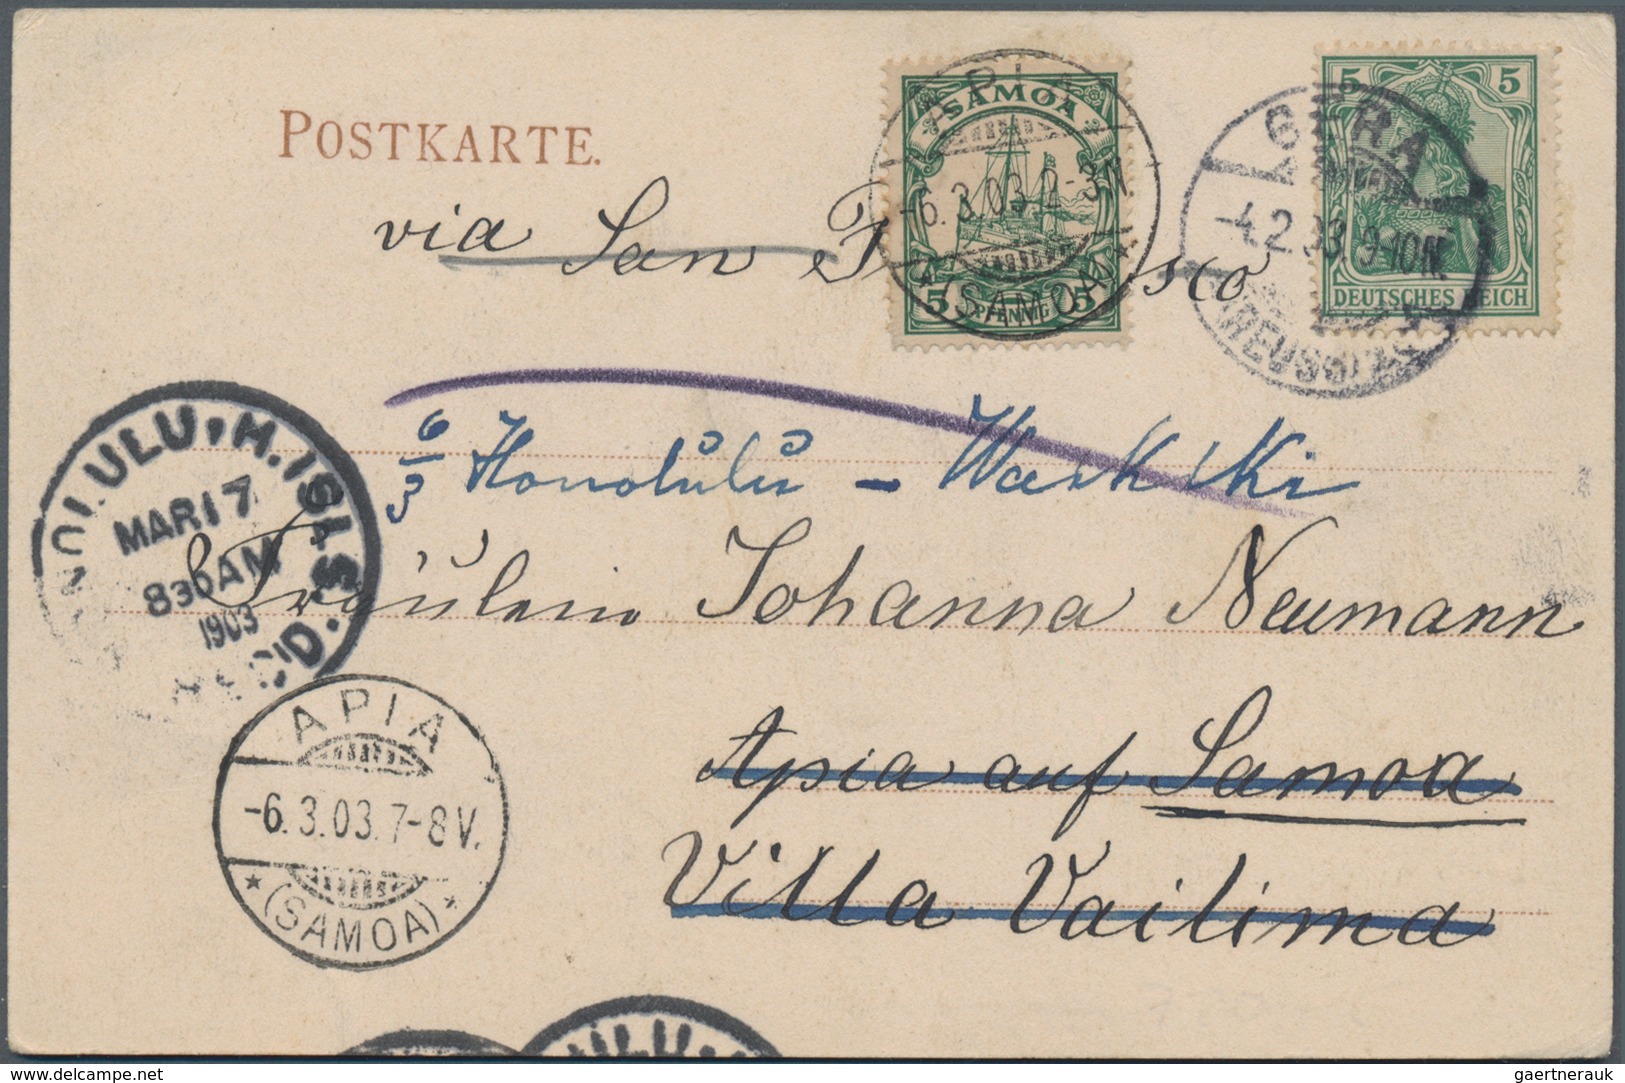 POSTKARTE.
via San F sco
SAMOA
5 PFENNIG 5
APIA
-6.3.03. 2-3N.
(SAMOA)
5 5
DEUTSCHES REICH
GERA
-4.2.03. 9-10N.
(REUSS)
6/3 Honolulu - Waikiki
Fräulein Johanna Neumann
Apia auf Samoa
Villa Vailima
HONOLULU, H. ISLS.
MAR 17
830AM
1903
REC'D.
APIA
-6.3.03.7-8V.
* (SAMOA) *
www.delcampe.net
gaertnerauk